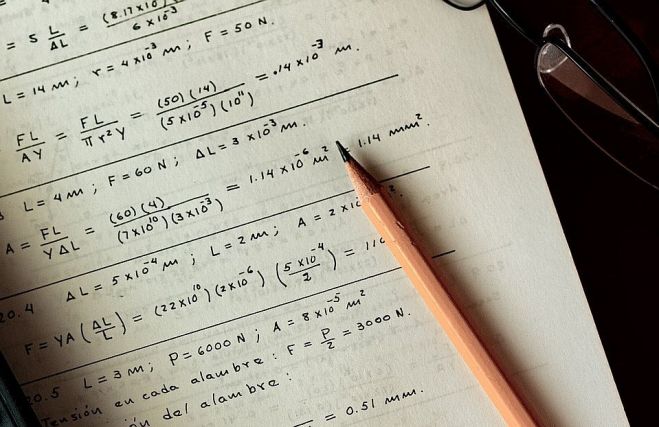 = S L/ΔL = (8.17×10 / 6×10⁻³
L = 14 m ; r = 4×10⁻³ m ; F = 50 N.
FL/AY = FL/πr²Y = (50)(14)/(5×10⁻⁵)(10¹¹) = .14×10⁻³ m.
L = 4 m ; F = 60 N ; ΔL = 3×10⁻³ m.
A = FL/YΔL = (60)(4)/(7×10¹⁰)(3×10⁻³) = 1.14×10⁻⁶ m² = 1.14 mm².
20.4 ΔL = 5×10⁻⁴ m ; L = 2 m ; A = 2×10
F = YA (ΔL/L) = (22×10¹⁰)(2×10⁻⁶) (5×10⁻⁴/2) = 110
20.5 L = 3 m ; P = 6000 N ; A = 8×10⁻⁵ m²
Tensión en cada alambre : F = P/2 = 3000 N.
ión del alambre :
= 0.51 mm.